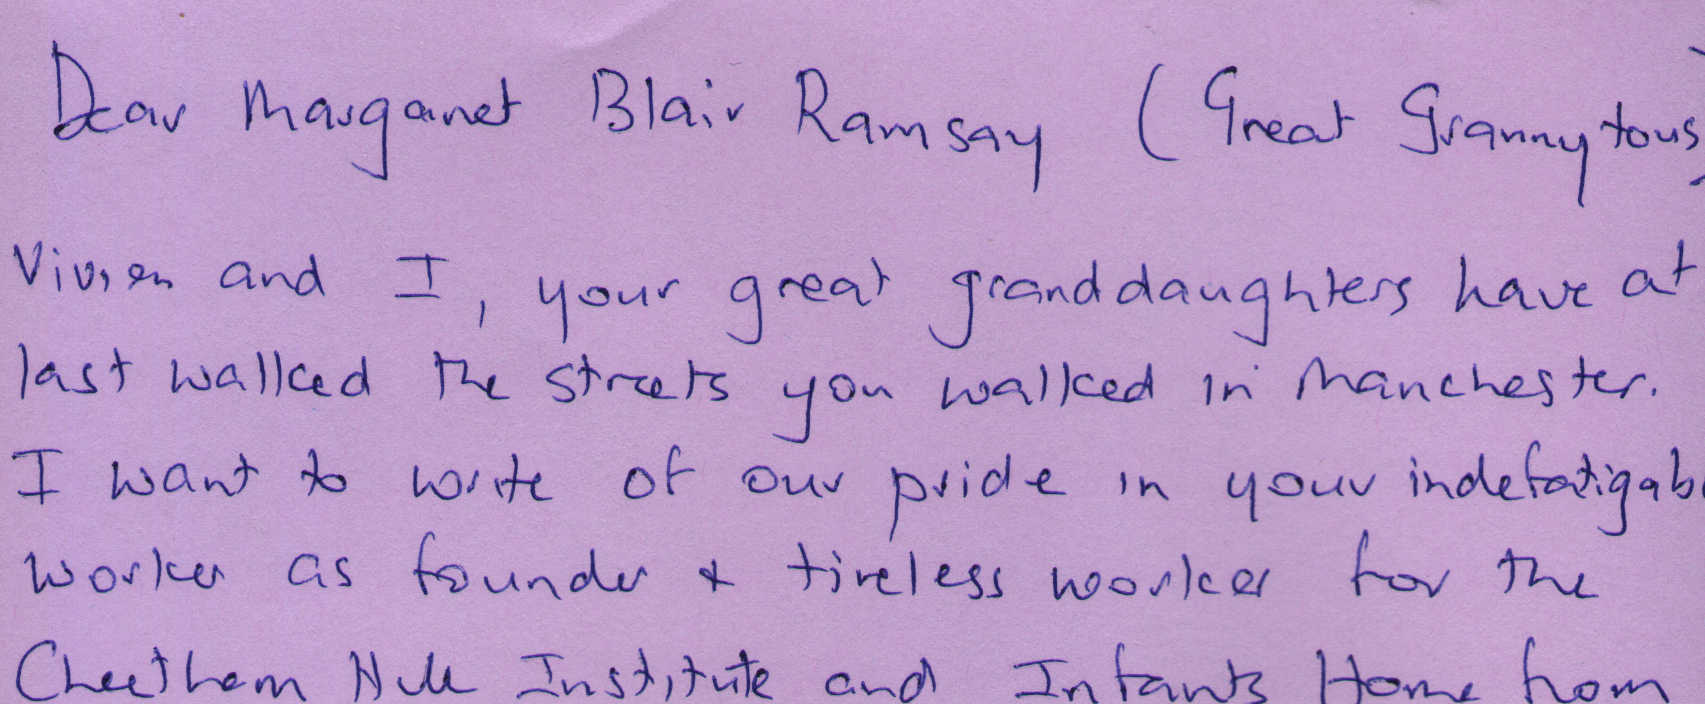 Dear Margaret Blair Ramsay (Great Granny to us)
Vivien and I, your great granddaughters have at
last walked the streets you walked in Manchester.
I want to write of our pride in your indefatigab
worker as founder & tireless worker for the
Cheetham Hill Institute and Infants Home from